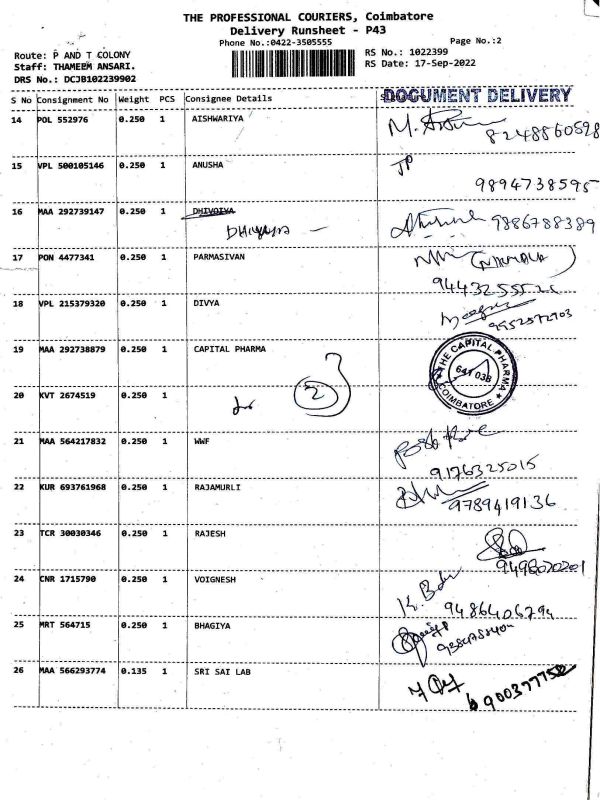 THE PROFESSIONAL COURIERS, Coimbatore
Delivery Runsheet - P43
Phone No.:0422-3505555
Page No.:2
Route: P AND T COLONY
RS No.: 1022399
Staff: THAMEEM ANSARI.
RS Date: 17-Sep-2022
DRS No.: DCJB102239902
S No Consignment No Weight PCS Consignee Details DOCUMENT DELIVERY
14 POL 552976 0.250 1 AISHWARIYA
8248860598
15 VPL 500105146 0.250 1 ANUSHA
9894738595
16 MAA 292739147 0.250 1 DHIVOIYA
9886788389
17 PON 4477341 0.250 1 PARMASIVAN
(NIRMALA)
18 VPL 215379320 0.250 1 DIVYA
9952572903
19 MAA 292738879 0.250 1 CAPITAL PHARMA
THE CAPITAL PHARMA
641 038
COIMBATORE
20 KVT 2674519 0.250 1
2
21 MAA 564217832 0.250 1 WWF
9176325015
22 KUR 693761968 0.250 1 RAJAMURLI
9789419136
23 TCR 30030346 0.250 1 RAJESH
9498020201
24 CNR 1715790 0.250 1 VOIGNESH
9486406794
25 MRT 564715 0.250 1 BHAGIYA
26 MAA 566293774 0.135 1 SRI SAI LAB